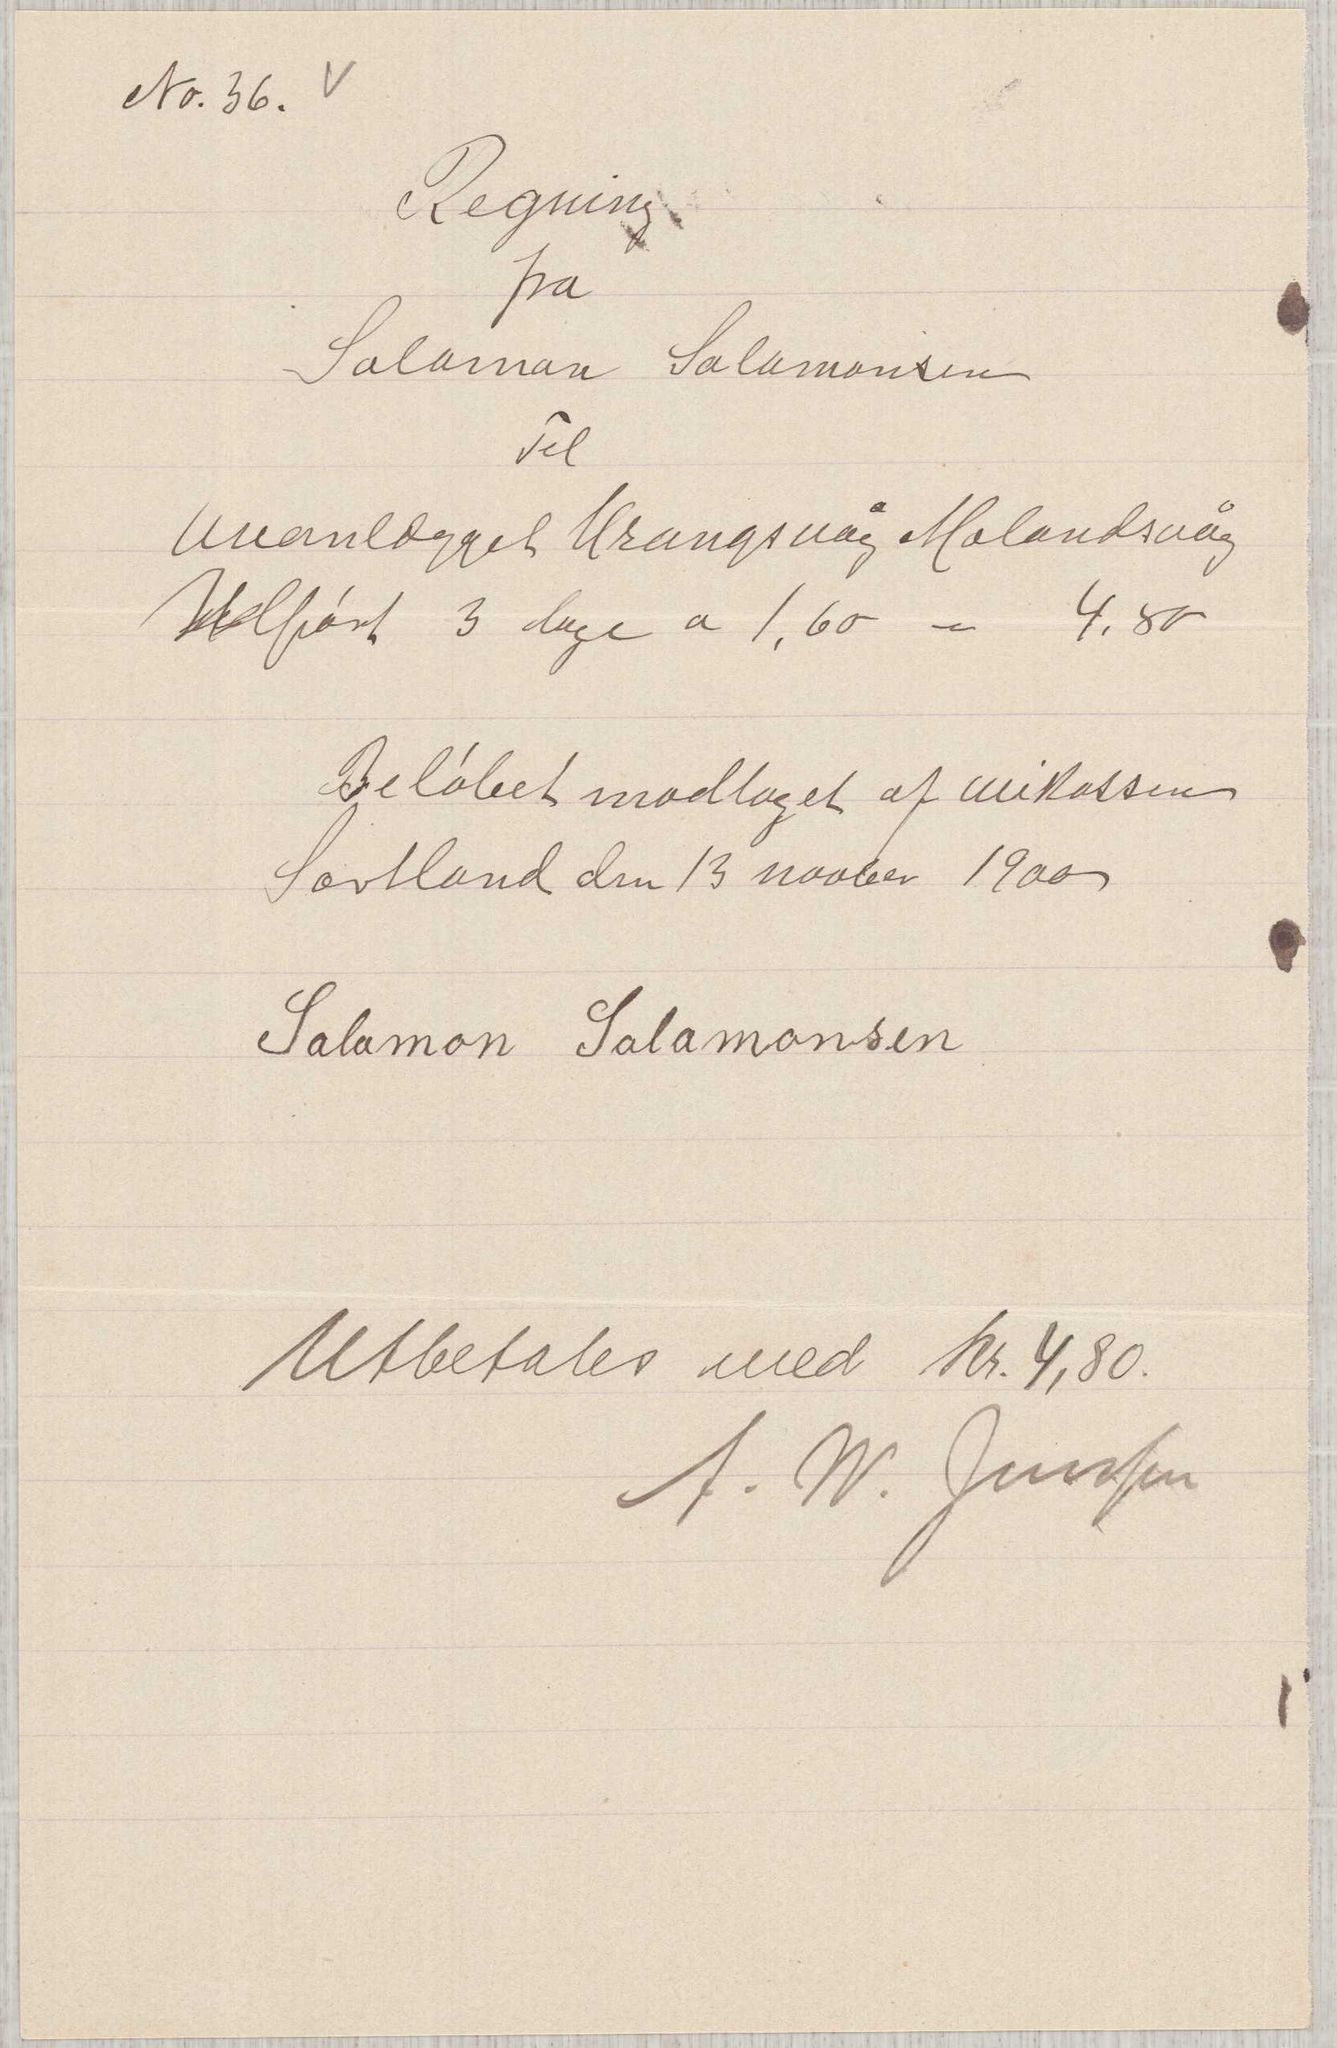 No. 36. V
Regning
fra
Salaman Salamonsen
Til
Uueanlægget Urangsvåg Melandsvåg
Udfört 3 dage a 1,60 = 4.80
Belöbet modtaget af
Sortland den 13 1900
Salamon Salamonsen
Utbetales med kr. 4,80.
A. W. Jensen